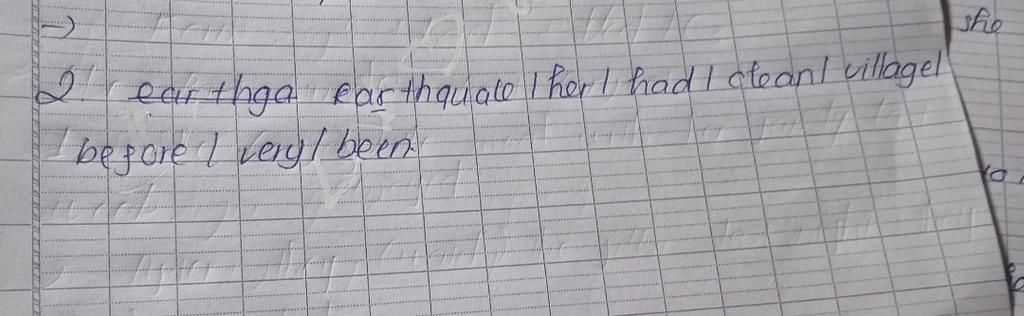 → sho
2. earthga earthquato / her / had / clean / village /
before / very / been.